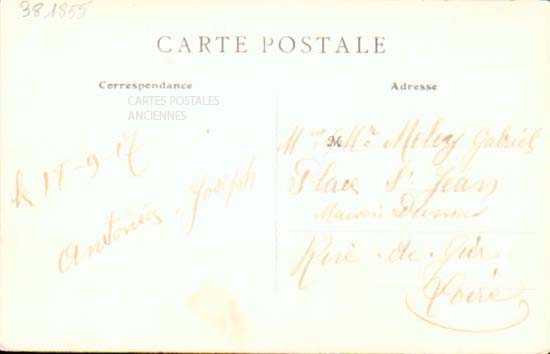 38.1855
CARTE POSTALE
Correspondance
Adresse
CARTES POSTALES
ANCIENNES
le 17-9-17
Antonia, Joseph
Mme Mr Meley Gabriel
Place St Jean
Maison
Rive-de-Gier
Loire